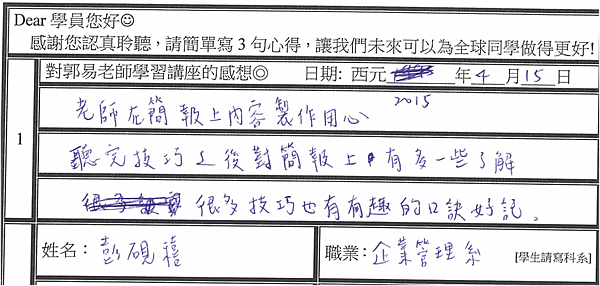 Dear 學員您好☺
感謝您認真聆聽，請簡單寫3句心得，讓我們未來可以為全球同學做得更好!
對郭易老師學習講座的感想◎ 日期: 西元 2015 年 4 月 15 日
1
老師在簡報上內容製作用心
聽完技巧之後對簡報上有多一些了解
很多技巧也有有趣的口訣好記。
姓名：彭硯禧
職業：企業管理系 [學生請寫科系]